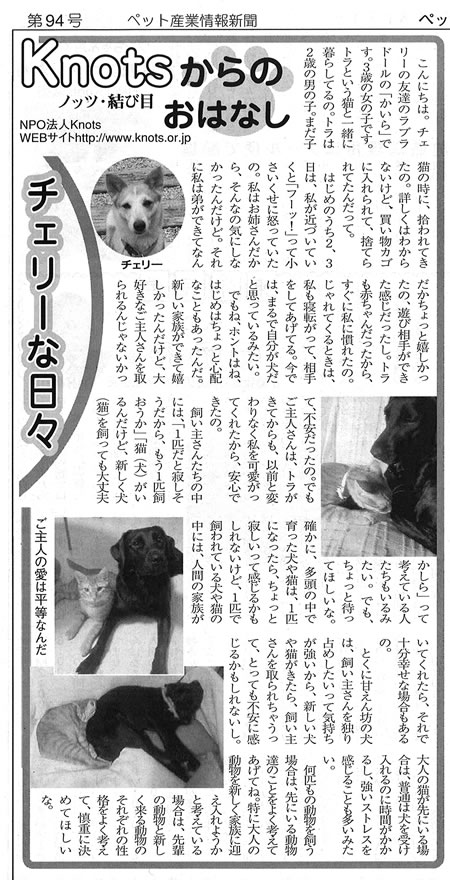 第94号
ペット産業情報新聞
ペッ
Knotsからの
おはなし
ノッツ・結び目
NPO法人Knots
WEBサイトhttp://www.knots.or.jp
チェリーな日々
チェリー
こんにちは。チェ
リーの友達のラブラ
ドールの「かいら」で
す。3歳の女の子です。
トラという猫と一緒に
暮らしてるの。トラは
2歳の男の子。まだ子
猫の時に、拾われてき
たの。詳しくはわから
ないけど、買い物カゴ
に入れられて、捨てら
れてたんだって。
はじめのうち2、3
日は、私が近づいてい
くと「フーッ!」って小
さいくせに怒っていた
の。私はお姉さんだか
ら、そんなの気にしな
かったんだけど。それ
に私は弟ができてなん
だかちょっと嬉しかっ
たの、遊び相手ができ
た感じだったし。トラ
も赤ちゃんだったから、
すぐに私に慣れたの。
じゃれてくるときは、
私も寝転がって、相手
をしてあげてる。今で
は、まるで自分が犬だ
と思っているみたい。
でもね、ホントはね、
はじめはちょっと心配
なこともあったんだ。
新しい家族ができて嬉
しかったんだけど、大
好きなご主人さんを取
られるんじゃないかっ
て、不安だったの。でも
ご主人さんは、トラが
きてからも、以前と変
わりなく私を可愛がっ
てくれたから、安心で
きたの。
飼い主さんたちの中
には、「1匹だと寂しそ
うだから、もう1匹飼
おうか」「猫(犬)がい
るんだけど、新しく犬
(猫)を飼っても大丈夫
かしら」って
考えている人
たちもいるみ
たい。でも、
ちょっと待っ
てほしいな。
確かに、多頭の中で
育った犬や猫は、1匹
になったら、ちょっと
寂しいって感じるかも
しれないけど、1匹で
飼われている犬や猫の
中には、人間の家族が
いてくれたら、それで
十分幸せな場合もある
の。
とくに甘えん坊の犬
は、飼い主さんを独り
占めしたいって気持ち
が強いから、新しい犬
や猫がきたら、飼い主
さんを取られちゃうっ
て、とっても不安に感
じるかもしれないし。
大人の猫が先にいる場
合は、普通は犬を受け
入れるのに時間がかか
るし、強いストレスを
感じることも多いみた
い。
何匹もの動物を飼う
場合は、先にいる動物
達のことをよく考えて
あげてね。特に大人の
動物を新しく家族に迎
え入れようか
と考えている
場合は、先輩
の動物と新し
く来る動物の
それぞれの性
格をよく考え
て、慎重に決
めてほしい
な。
ご主人の愛は平等なんだ